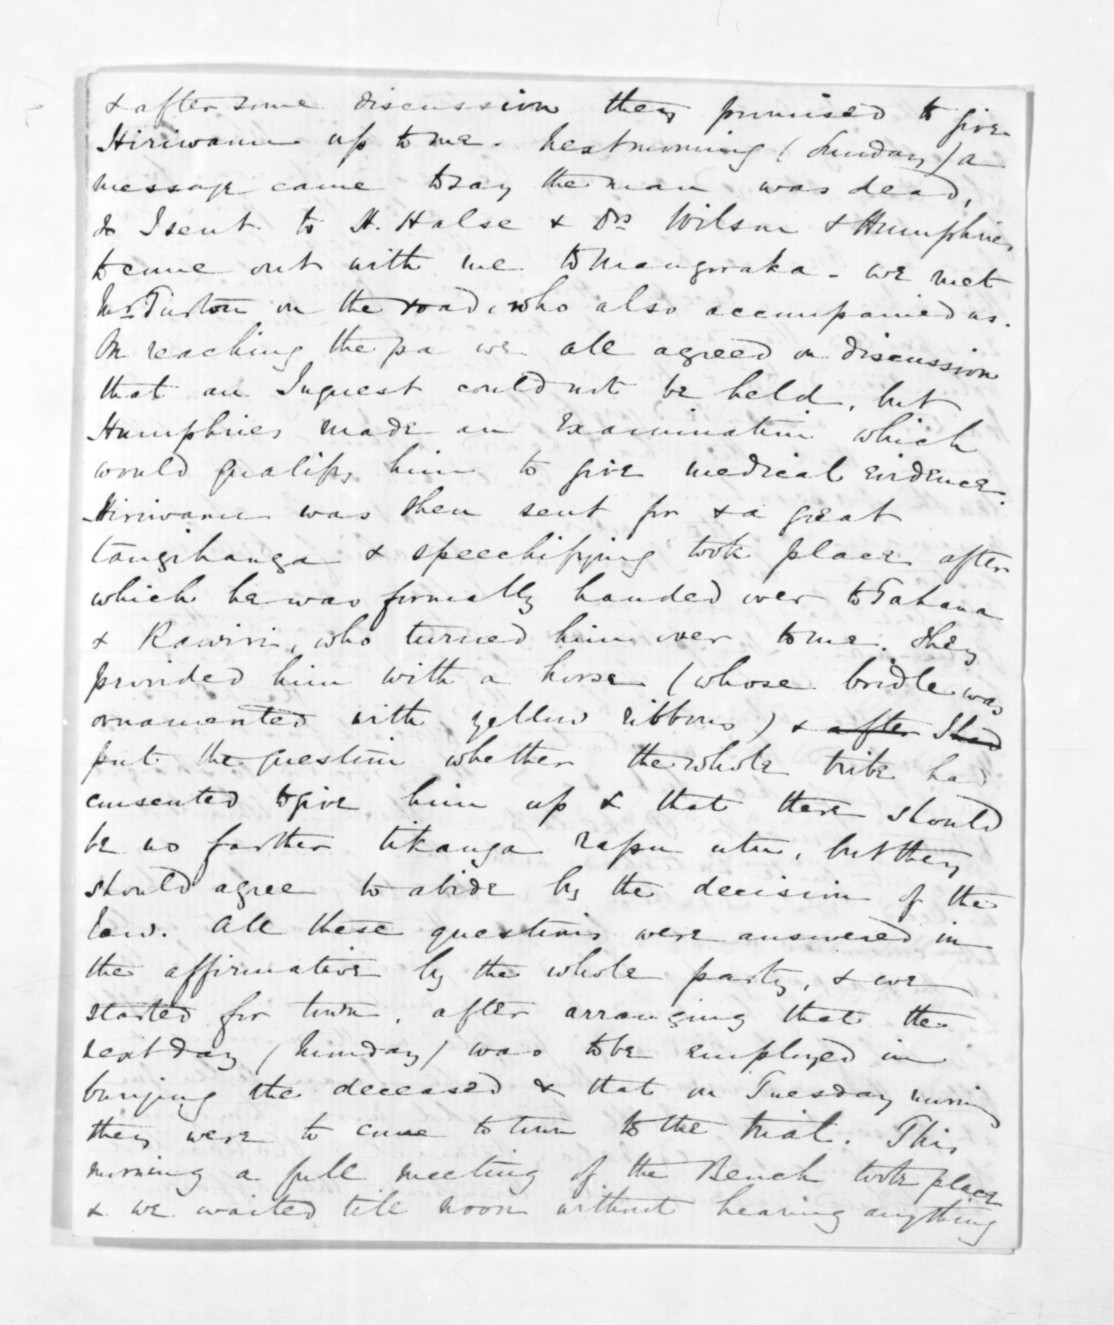 & after some discussion they promised to give
Hiriwanu up to me. Next morning (Sunday) a
message came to say the man was dead,
& I sent to H. Halse & Drs Wilson & Humphries
to come out with me to Mangoraka - we met
Mr Turton on the road, who also accompanied us.
On reaching the pa we all agreed on discussion
that an Inquest could not be held, but
Humphries made an Examination which
would qualify him to give medical evidence.
Hiriwanu was then sent for & a great
tangihanga & speechifying took place after
which he was formally handed over to Tahana
& Rawiri, who turned him over to me. They
provided him with a horse (whose bridle was
ornamented with yellow ribbons) & after I had
put the question whether the whole tribe had
consented to give him up & that there should
be no farther tikanga rapu utu, but they
should agree to abide by the decision of the
law. All these questions were answered in
the affirmative by the whole party, & we
started for town, after arranging that the
next day (Monday) was to be employed in
burying the deceased & that on Tuesday morning
they were to come to town to the trial. This
morning a full meeting of the Bench took place
& we waited till noon without hearing anything